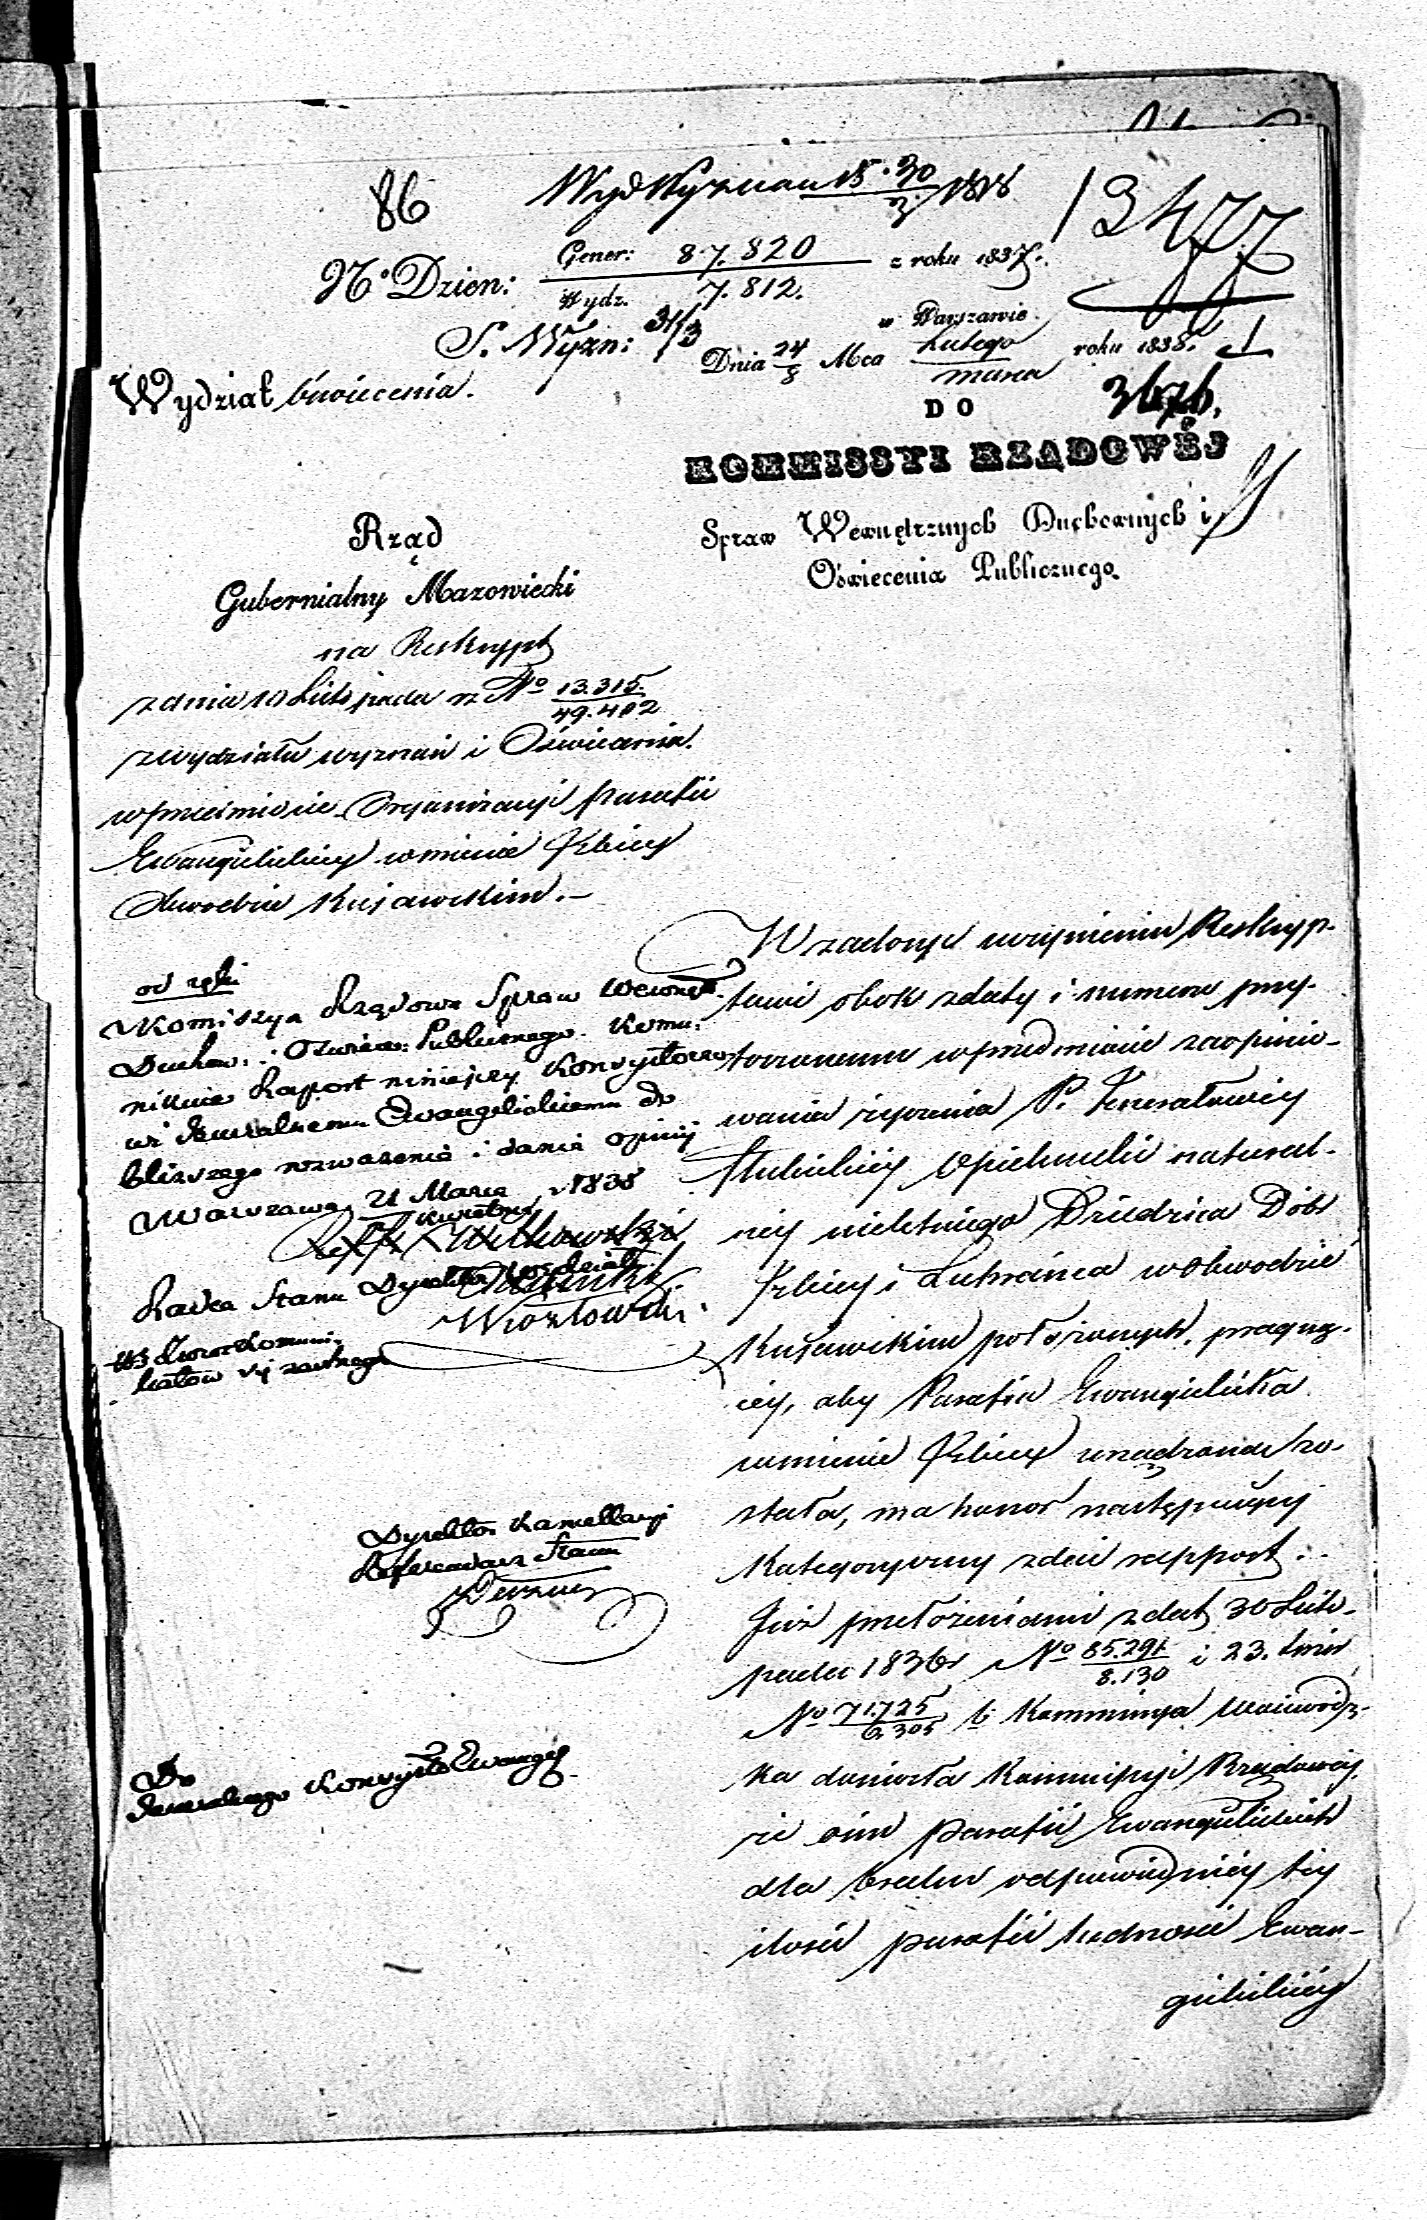 86
Wyd Wyznań 15/30 3 1838
13477
N° Dzien: Gener: 87.820 z roku 1837.
Wydz. 7.812.
S. Wyzn: 31/3
w Warszawie
Dnia 24/8 Mca Lutego/marca roku 1838. 1
Wydział Oświecenia.
3676.
DO
KOMMISSYI RZĄDOWÉJ
Spraw Wewnętrznych Duchownych i
Oświecenia Publicznego.
Rząd
Gubernialny Mazowiecki
na Reskrypt
z dnia 10 Listopada r z N° 13.315./49.402
z wydziału wyznań i Oświecenia.
w przedmiocie Organizacyi parafii
Ewangelickiey w mieście Izbicy
Obwodzie Kujawskim.—
od ręki
Kommissya Rządowa Spraw Wewnętr.
Duchow. i Oświec: Publicznego Kommu-
nikuie Raport ninieyszy Konsystorzo-
wi Jeneralnemu Ewangelickiemu do
bliższego rozważenia i dania opinij
w Warszawie 21 Marca/Kwietnia r 1838
Radca Stanu Dyrektor Wydziału
Dyrektor Kancellaryi
Referendarz Stanu
Do
Jeneralnego Konsystorza Ewangel.
W zadosyć uczynieniu Reskryp-
towi obok z daty i numeru przy-
toczonemu w przedmiocie zaopinio-
wania życzenia P. Zboińskiey
Opiekunki natural-
ney nieletniego Dziedzica Dóbr
Izbicy i Lubrańca w Obwodzie
Kujawskim położonych, pragną-
cey, aby Parafia Ewangelicka
w mieście Izbicy urządzona zo-
stała, ma honor następuiący
Kategoryczny zdać rapport.
Już przełożeniami z dat 30 Listo-
pada 1836 r N° 85.291/8.130 i 23.
N° 71.725/6.305 b. Kommissya Woiewódz-
ka doniosła Kommissyi Rządowéy,
że ośm parafii Ewangelickich
dla braku odpowiedniéy téy
ilości parafii ludności Ewan-
gelickiéy